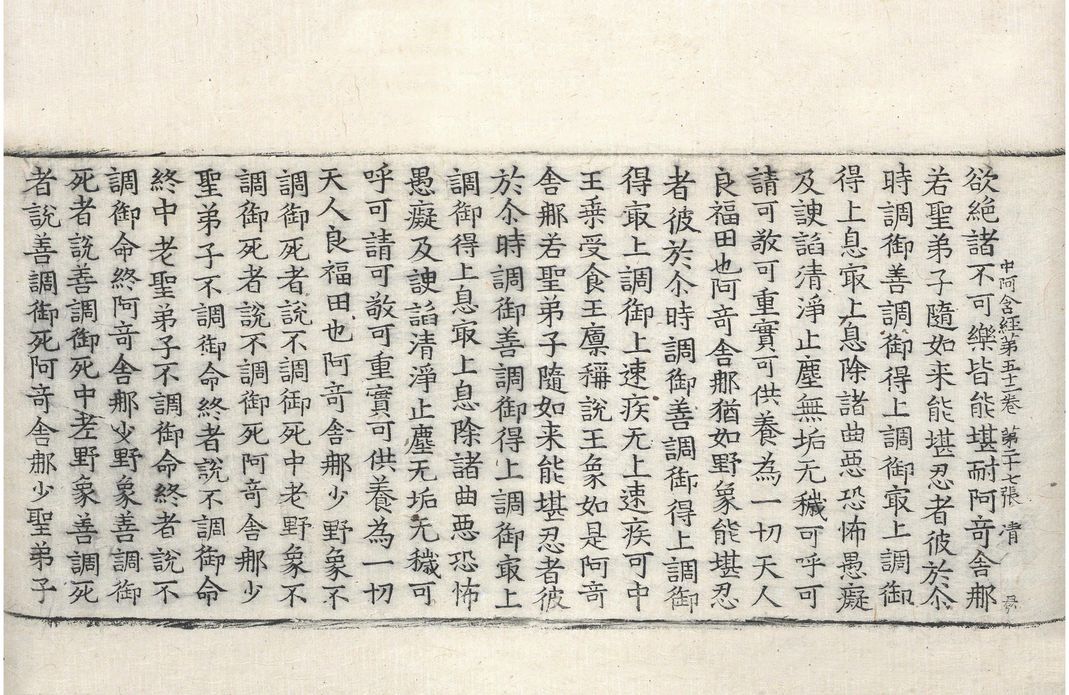 中阿含經第五十二卷 第二十七張 清
欲絶諸不可樂皆能堪耐阿竒舍那
若聖弟子隨如来能堪忍者彼於尒
時調御善調御得上調御冣上調御
得上息冣上息除諸曲惡恐怖愚癡
及諛諂清淨止塵無垢无穢可呼可
請可敬可重實可供養為一切天人
良福田也阿竒舍那猶如野象能堪忍
者彼於尒時調御善調御得上調御
得冣上調御上速疾无上速疾可中
王乗受食王廪稱說王象如是阿竒
舍那若聖弟子隨如来能堪忍者彼
於尒時調御善調御得上調御冣上
調御得上息冣上息除諸曲惡恐怖
愚癡及諛諂清淨止塵无垢无穢可
呼可請可敬可重實可供養為一切
天人良福田也阿竒舍那少野象不
調御死者說不調御死中老野象不
調御死者說不調御死阿竒舍那少
聖弟子不調御命終者說不調御命
終中老聖弟子不調御命終者說不
調御命終阿竒舍那少野象善調御
死者說善調御死中老野象善調死
者說善調御死阿竒舍那少聖弟子